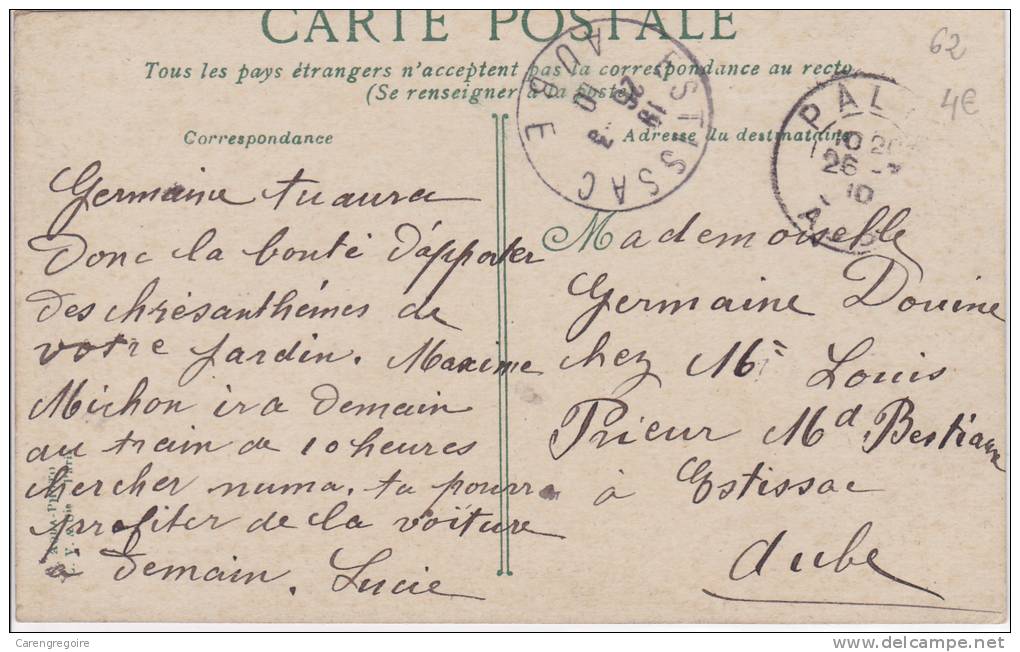 CARTE POSTALE
Tous les pays étrangers n'acceptent pas la correspondance au recto
(Se renseigner à la poste)
Correspondance
Adresse du destinataire
62
4€
ESTISSAC
AUBE
PAL
10
26
10
Germaine tu aura
Donc la bonté d'apporter
des chrésanthémes de
votre jardin. Maxime
Michon ira Demain
au train de 10 heures
chercher numa. tu pourra
profiter de la voiture
Demain. Lucie
Mademoiselle
Germaine Douine
chez Mr Louis
Prieur Md Bestiaux
à Estissac
Aube
Carengregoire
www.delcampe.net